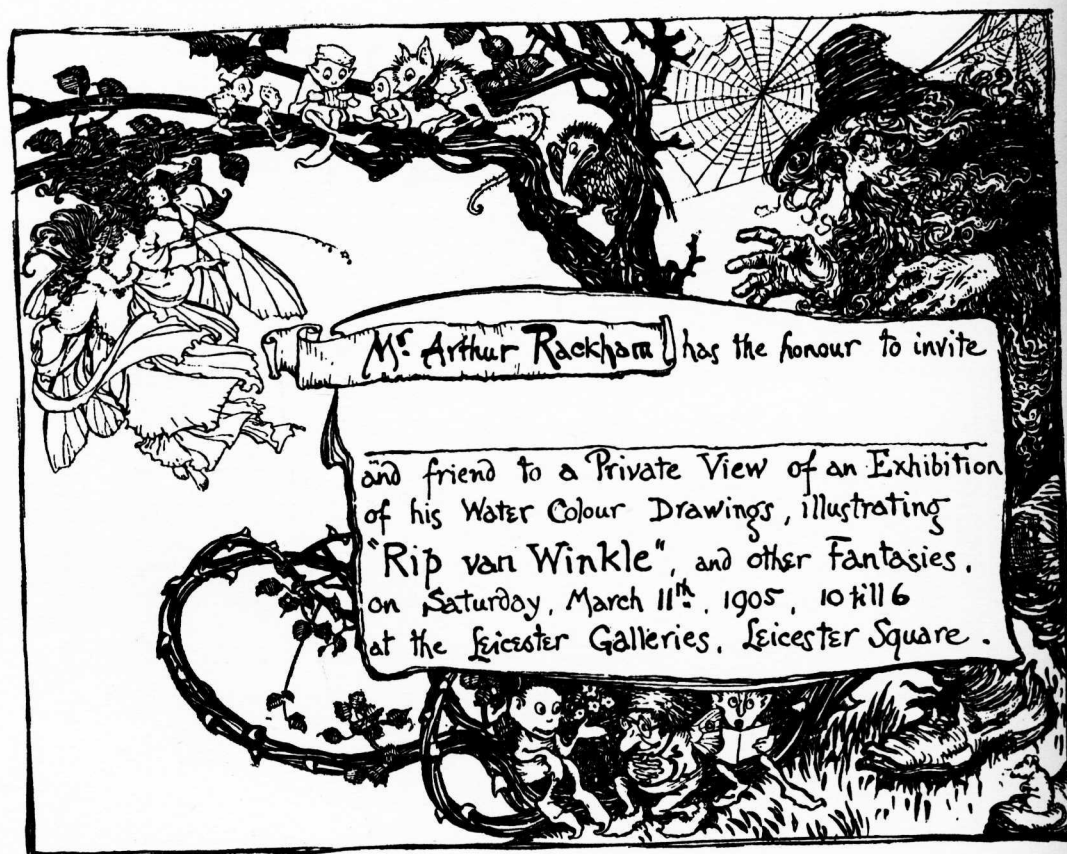 Mr. Arthur Rackham has the honour to invite
and friend to a Private View of an Exhibition
of his Water Colour Drawings, illustrating
"Rip van Winkle", and other Fantasies.
on Saturday, March 11th, 1905, 10 till 6
at the Leicester Galleries, Leicester Square.